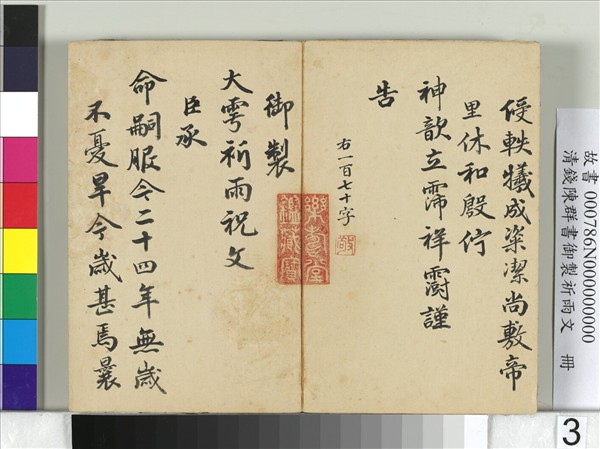 軼犧成粢潔尚敷帝
里休和殷佇
神歆立霈祥謹
告
右一百七十字
樂壽堂
鑑藏寶
御製
大雩祈雨祝文
臣承
命嗣服今二十四年無歲
不憂旱今歲甚焉曩
故書 000786N000000000
清錢陳群書御製祈雨文 冊
3